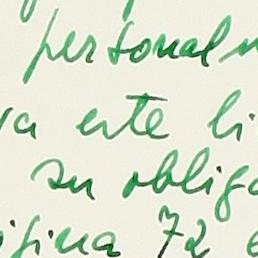 personalm
ya este li
su obliga
ágina 72 e